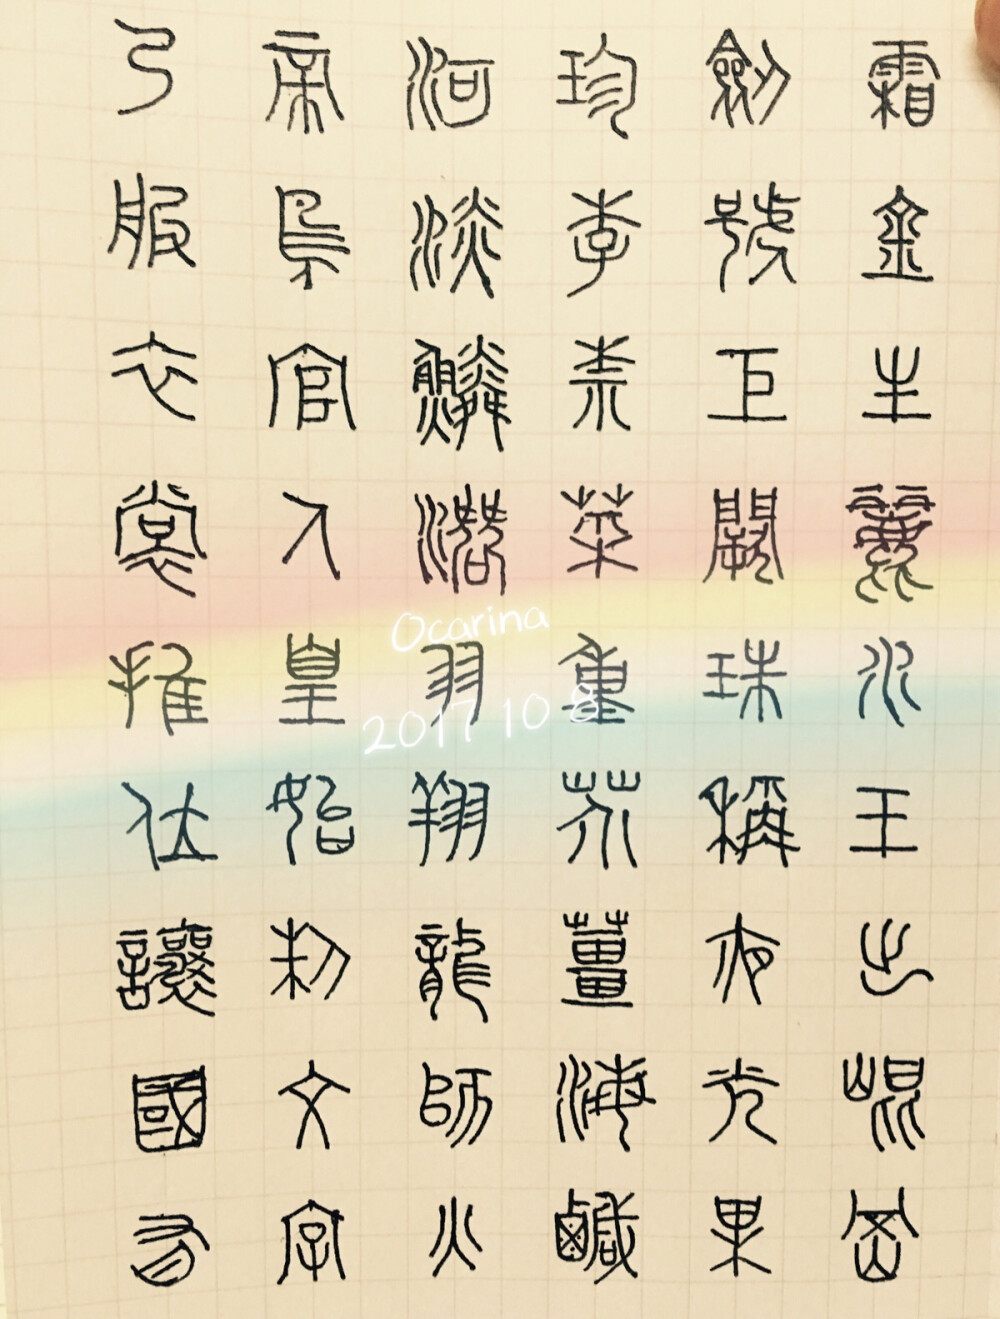 霜金生麗水玉出崐岡
劍號巨闕珠稱夜光果
珍李柰菜重芥薑海鹹
河淡鱗潛羽翔龍師火
帝鳥官人皇始制文字
乃服衣裳推位讓國有
Ocarina
2017 10 8